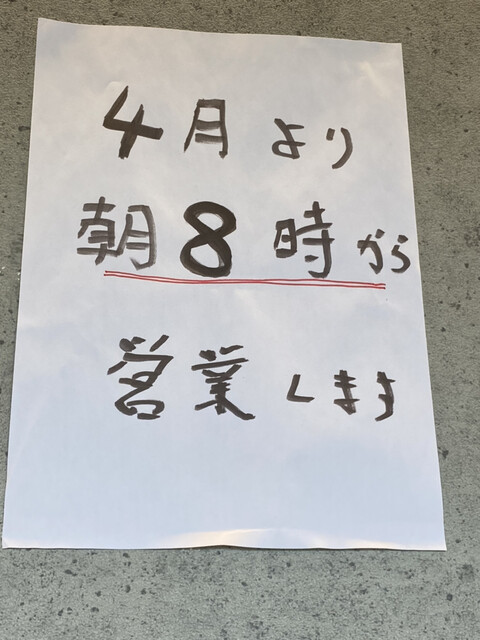 4月より
朝8時から
営業します